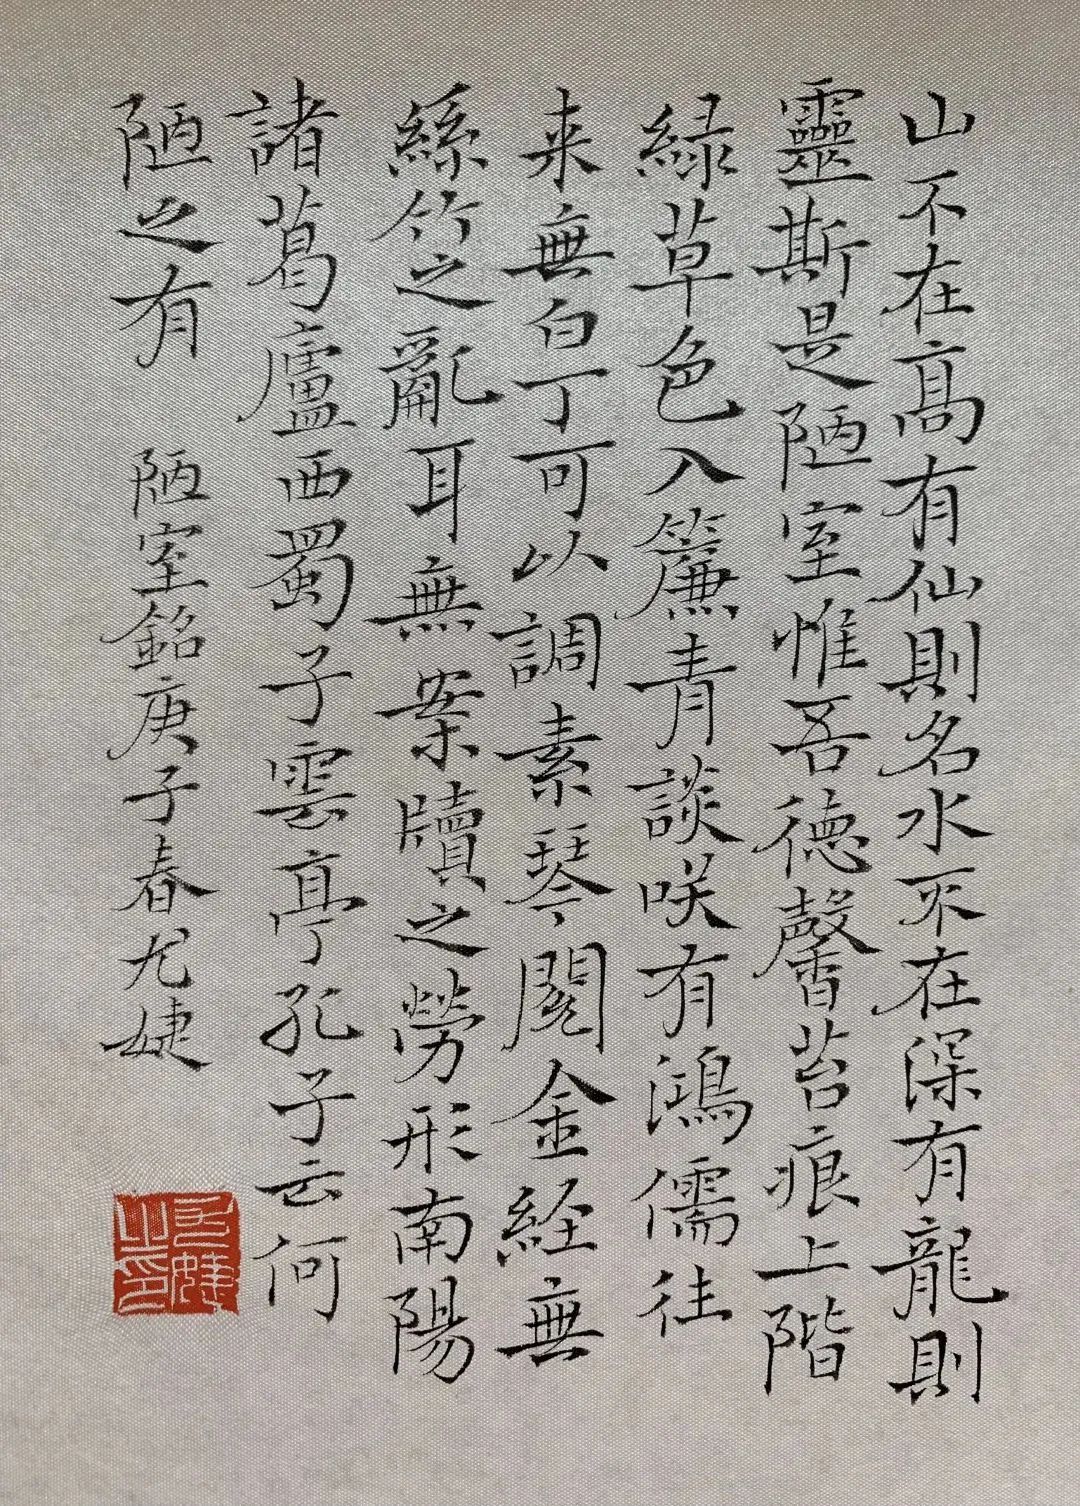 山不在高有仙則名水不在深有龍則
靈斯是陋室惟吾德馨苔痕上階
緑草色入簾青談咲有鴻儒往
来無白丁可以調素琴閱金経無
絲竹之亂耳無案牘之勞形南陽
諸葛廬西蜀子雲亭孔子云何
陋之有 陋室銘庚子春尤婕
尤婕之印